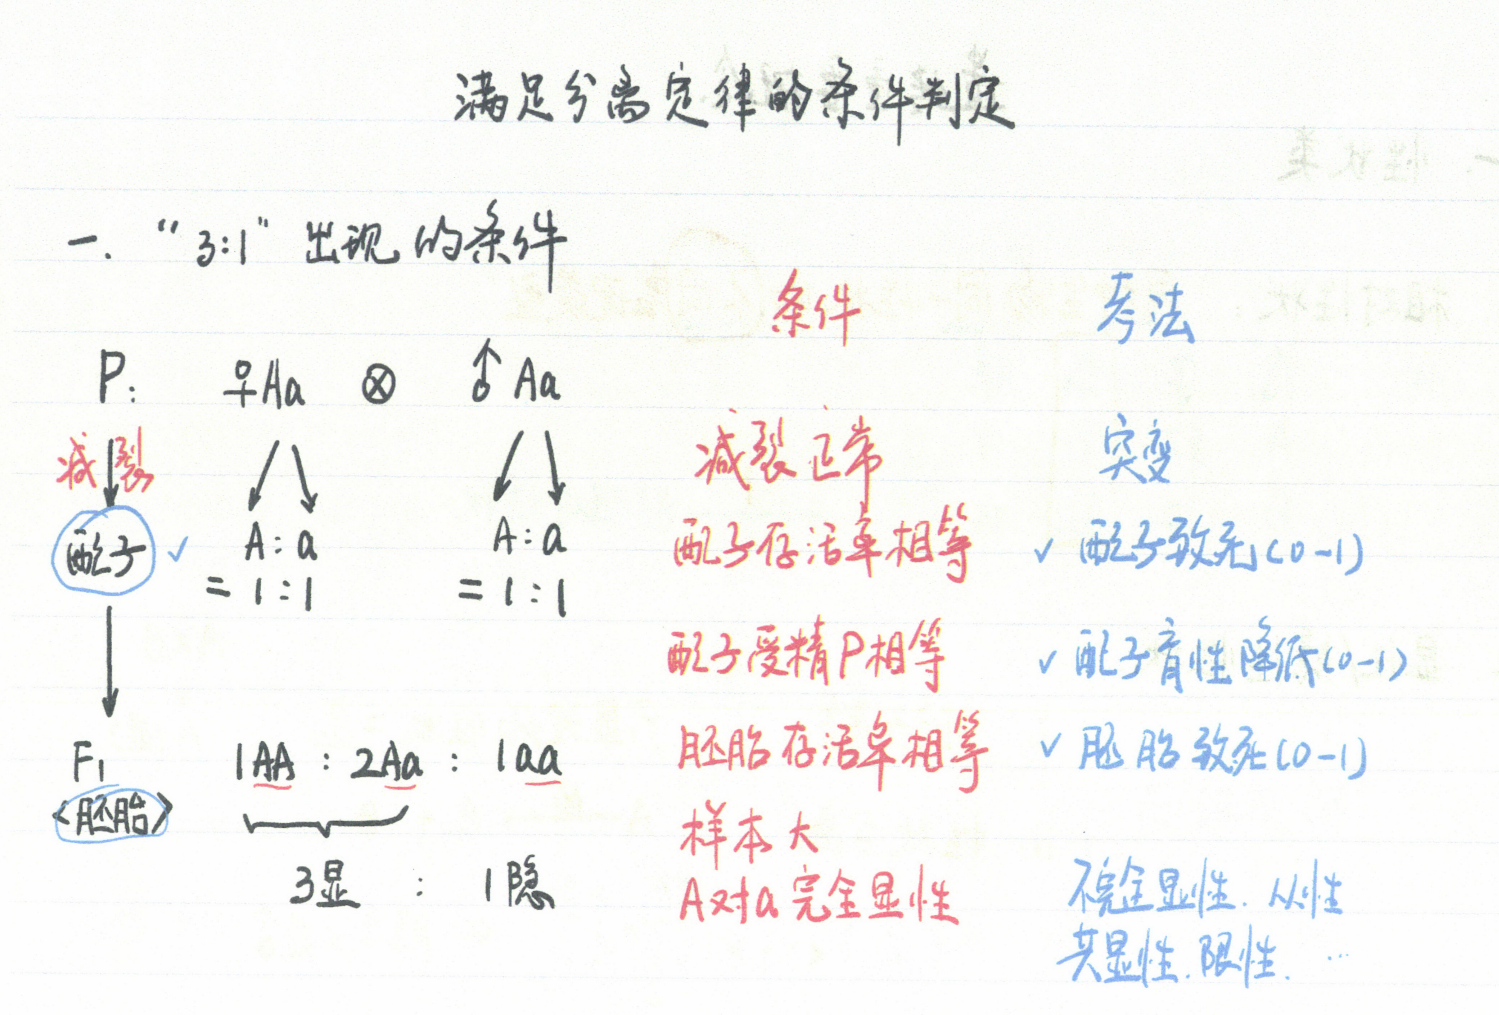 满足分离定律的条件判定
一."3:1"出现的条件
条件 考法
P: ♀Aa ⊗ ♂Aa
减裂 减裂正常 突变
配子 ✓ A:a A:a 配子存活率相等 ✓ 配子致死(0-1)
=1:1 =1:1
配子受精P相等 ✓ 配子育性降低(0-1)
F1 1AA : 2Aa : 1aa 胚胎存活率相等 ✓ 胚胎致死(0-1)
<胚胎> 样本大
3显 : 1隐 A对a完全显性 不完全显性.从性
共显性.限性.…